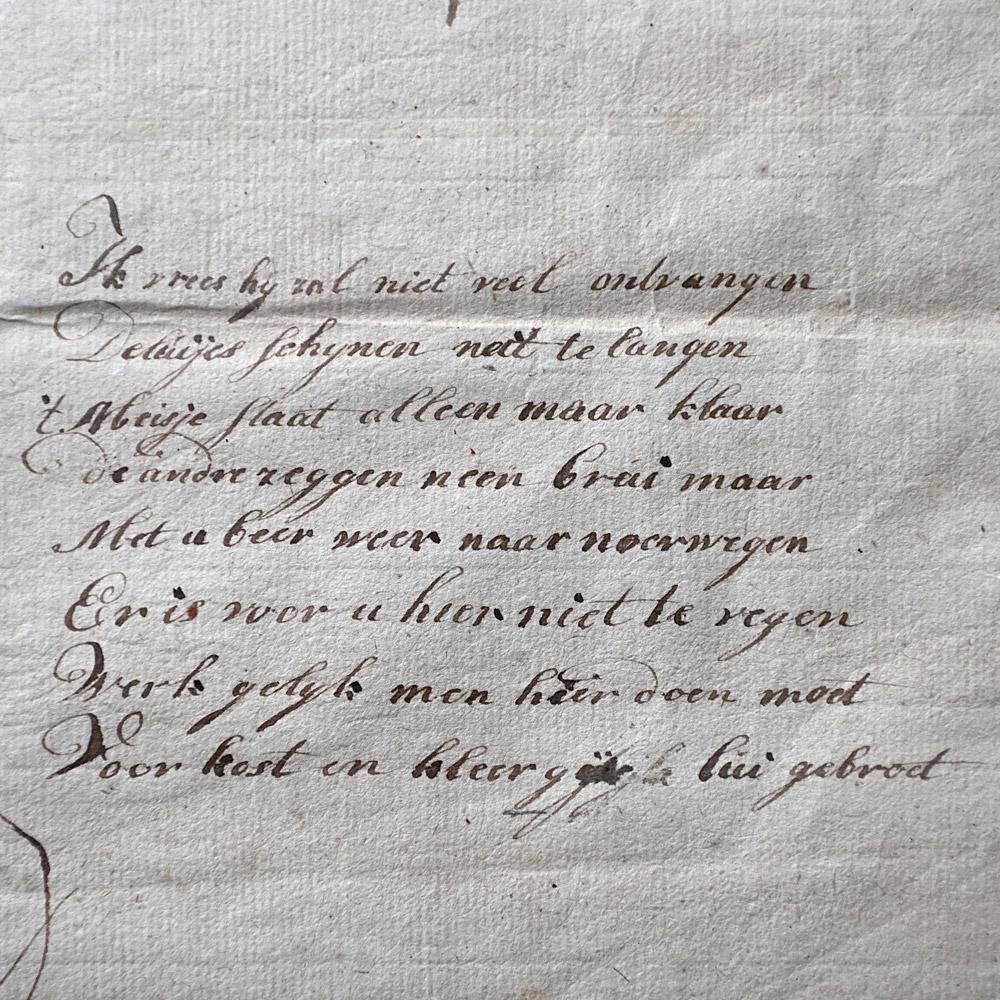 Ik vrees hy zal niet veel ontvangen
De luijes schynen nat te langen
't Meisje staat alleen maar klaar
de andre zeggen neen brui maar
Met u beer weer naar noerwegen
Er is voor u hier niet te vegen
Werk gelyk men hier doen moet
Voor kost en kleer gij lui gebroet